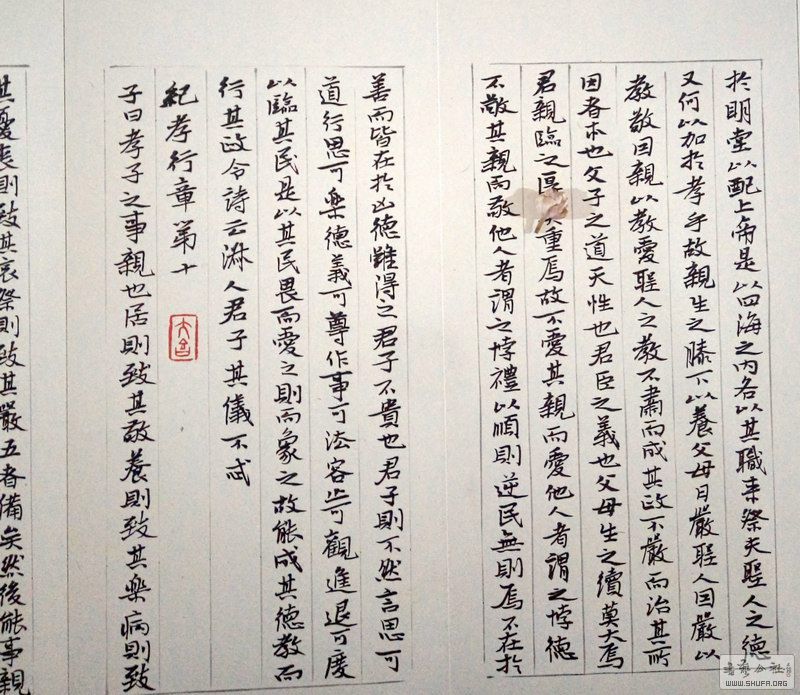 於明堂以配上帝是以四海之内各以其職来祭夫聖人之德
又何以加於孝乎故親生之膝下以養父母日嚴聖人因嚴以
教敬因親以教愛聖人之教不肅而成其政不嚴而治其所
因者本也父子之道天性也君臣之義也父母生之續莫大焉
君親臨之厚重焉故不愛其親而愛他人者謂之悖德
不敬其親而敬他人者謂之悖禮以順則逆民無則焉不在於
善而皆在於凶德雖得之君子不貴也君子則不然言思可
道行思可樂德義可尊作事可法容止可觀進退可度
以臨其民是以其民畏而愛之則而象之故能成其德教而
行其政令詩云淑人君子其儀不忒
紀孝行章第十
子曰孝子之事親也居則致其敬養則致其樂病則致
其憂喪則致其哀祭則致其嚴五者備矣然後能事親
WWW.SHUFA.ORG